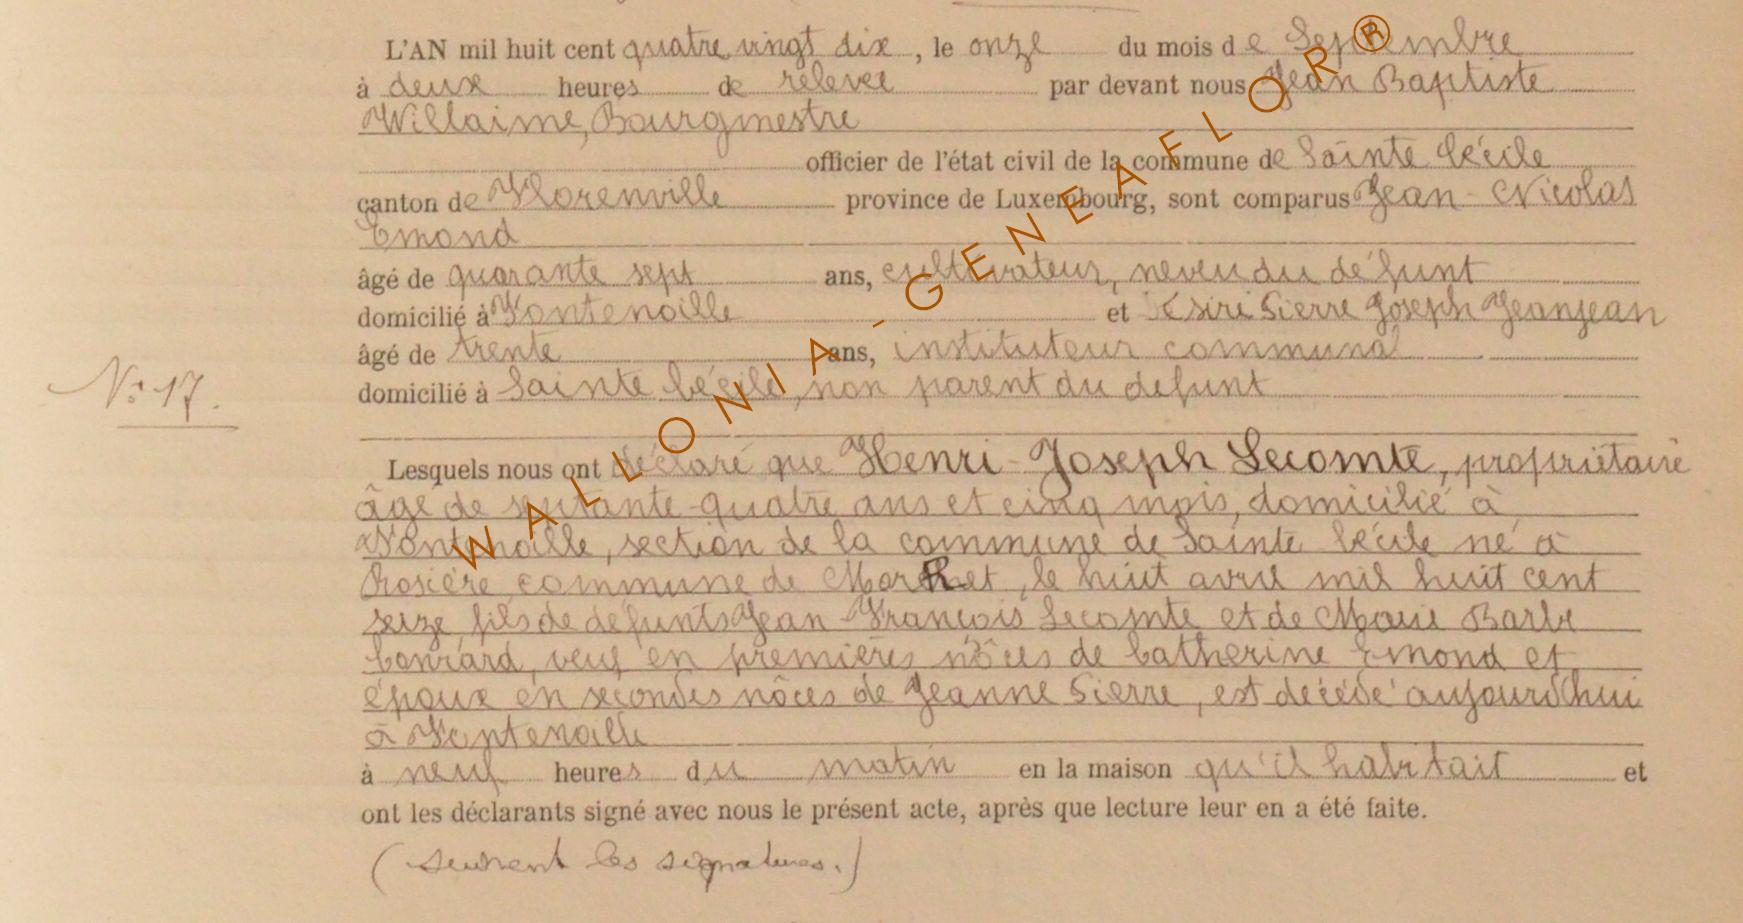 L'AN mil huit cent quatre vingt dix, le onze du mois de Septembre
à deux heures de relevée par devant nous Jean Baptiste
Willaime, Bourgmestre
officier de l'état civil de la commune de Sainte Cécile
canton de Florenville province de Luxembourg, sont comparus Jean-Nicolas
Emond
âgé de quarante sept ans, cultivateur, neveu du défunt
domicilié à Fontenoille et Désiré Pierre Joseph Jeanjean
âgé de trente ans, instituteur communal
domicilié à Sainte Cécile, non parent du défunt
N° 17.
Lesquels nous ont déclaré que Henri-Joseph Lecomte, propriétaire
âgé de septante-quatre ans et cinq mois, domicilié à
Fontenoille, section de la commune de Sainte Cécile né à
Rosière commune de Morhet, le huit avril mil huit cent
seize, fils de défunts Jean François Lecomte et de Marie Barbe
Conrard, veuf en premières nôces de Catherine Emond et
époux en secondes nôces de Jeanne Pierre, est décédé aujourd'hui
à Fontenoille
à neuf heures du matin en la maison qu'il habitait et
ont les déclarants signé avec nous le présent acte, après que lecture leur en a été faite.
(suivent les signatures.)
WALLONIA-GENEAFLOR®